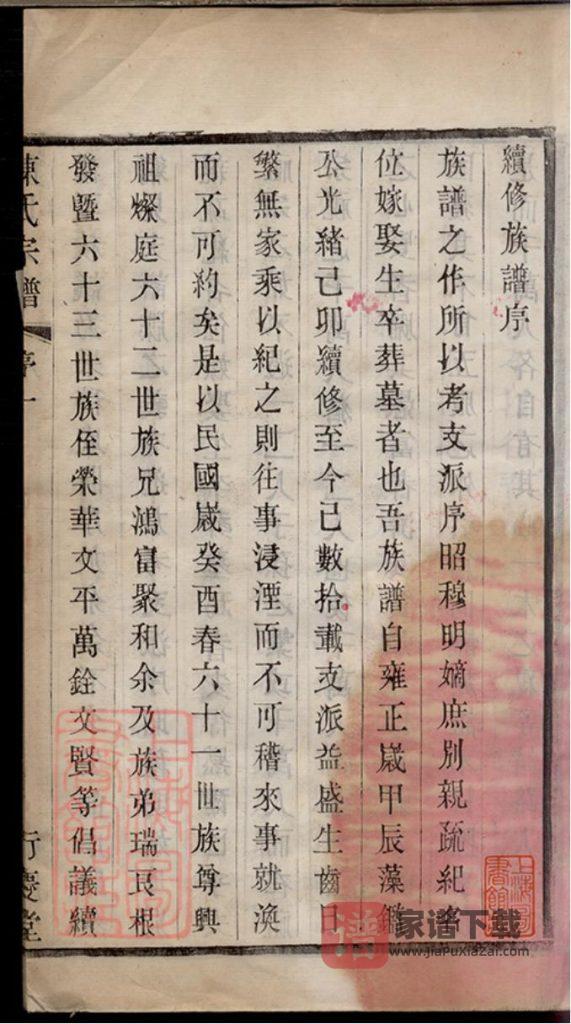 續修族譜序
族譜之作所以考支派序昭穆明嫡庶別親疏紀名
位嫁娶生卒葬墓者也吾族譜自雍正歲甲辰藻鑑
公光緒己卯續修至今已數拾載支派益盛生齒日
繁無家乘以紀之則往事浸湮而不可稽來事就渙
而不可約矣是以民國歲癸酉春六十一世族尊興
祖燦庭六十二世族兄鴻富聚和余及族弟瑞良根
發暨六十三世族侄榮華文平萬銓文賢等倡議續
陳氏宗譜 序 一 行慶堂
上海圖書館藏
譜 家谱下载
www.jiaPuxiazai.com